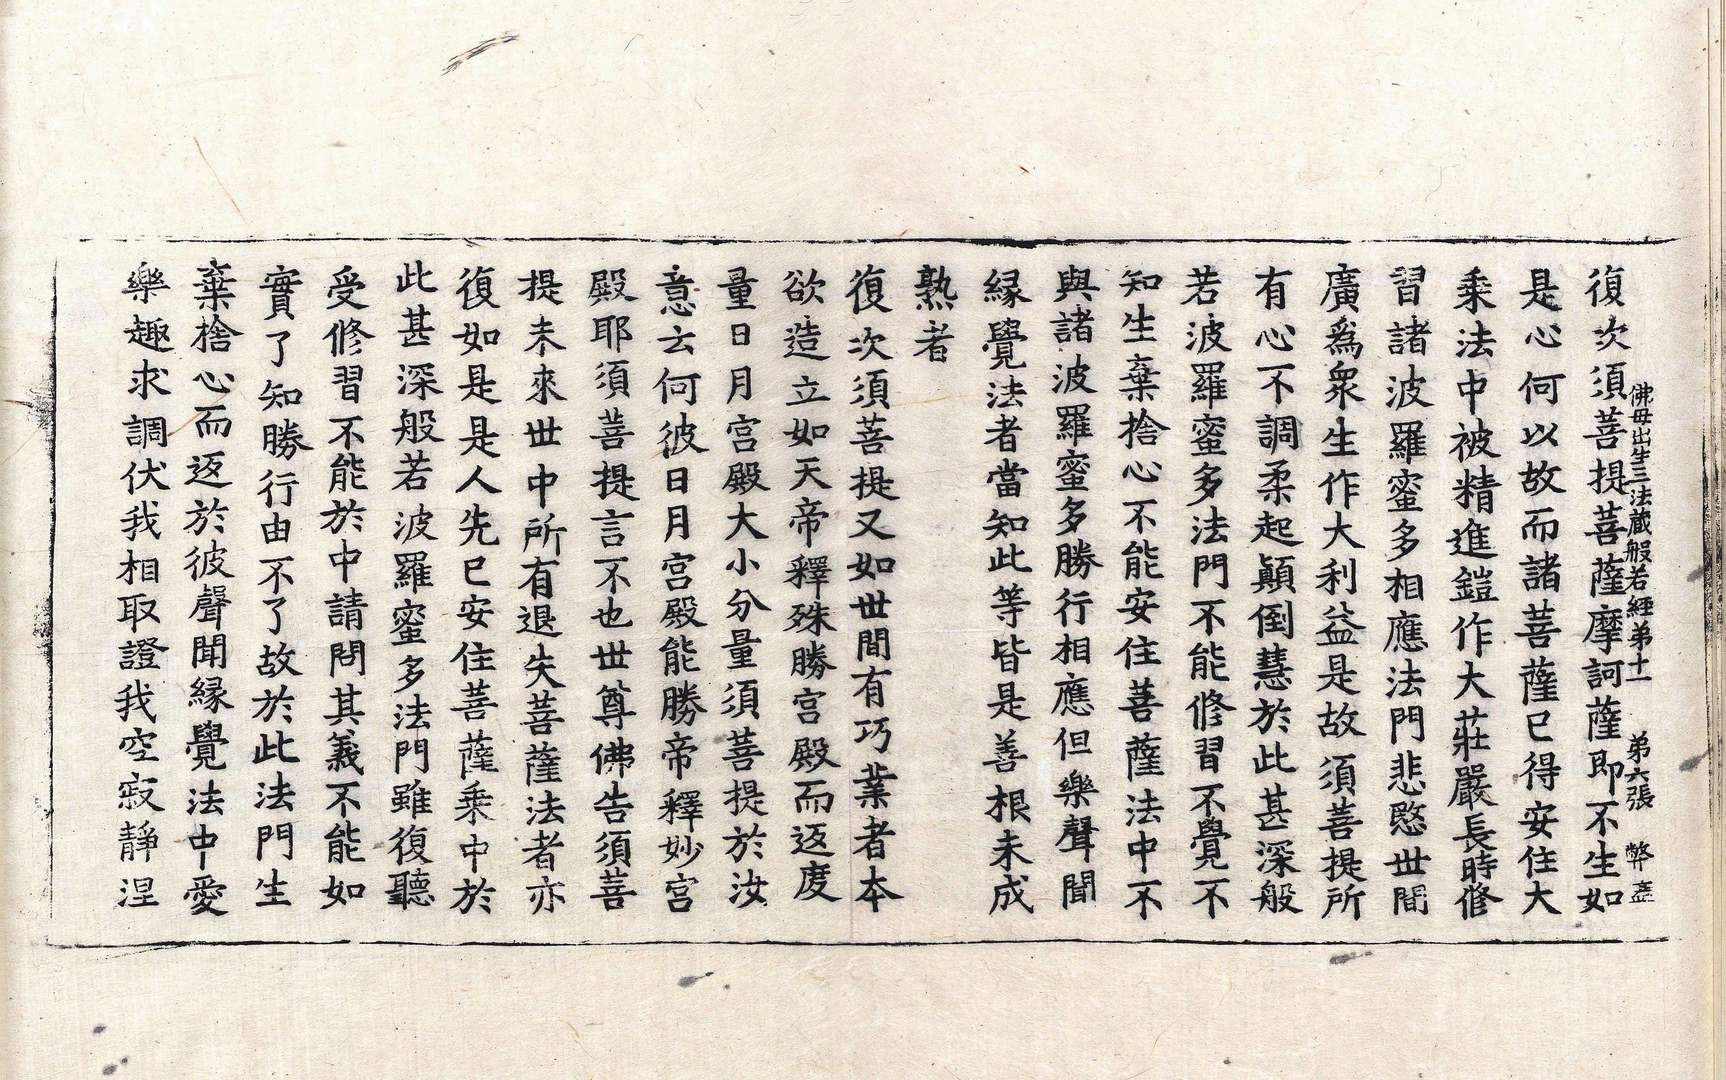 佛母出生三法藏般若經第十一 第六張 弊
復次須菩提菩薩摩訶薩即不生如
是心何以故而諸菩薩已得安住大
乗法中被精進鎧作大莊嚴長時修
習諸波羅蜜多相應法門悲愍世間
廣爲衆生作大利益是故須菩提所
有心不調柔起顚倒慧於此甚深般
若波羅蜜多法門不能修習不覺不
知生棄捨心不能安住菩薩法中不
與諸波羅蜜多勝行相應但樂聲聞
緣覺法者當知此等皆是善根未成
熟者
復次須菩提又如世間有巧業者本
欲造立如天帝釋殊勝宮殿而返度
量日月宮殿大小分量須菩提於汝
意云何彼日月宮殿能勝帝釋妙宮
殿耶須菩提言不也世尊佛告須菩
提未來世中所有退失菩薩法者亦
復如是是人先已安住菩薩乗中於
此甚深般若波羅蜜多法門雖復聽
受修習不能於中請問其義不能如
實了知勝行由不了故於此法門生
棄捨心而返於彼聲聞緣覺法中愛
樂趣求調伏我相取證我空寂靜涅